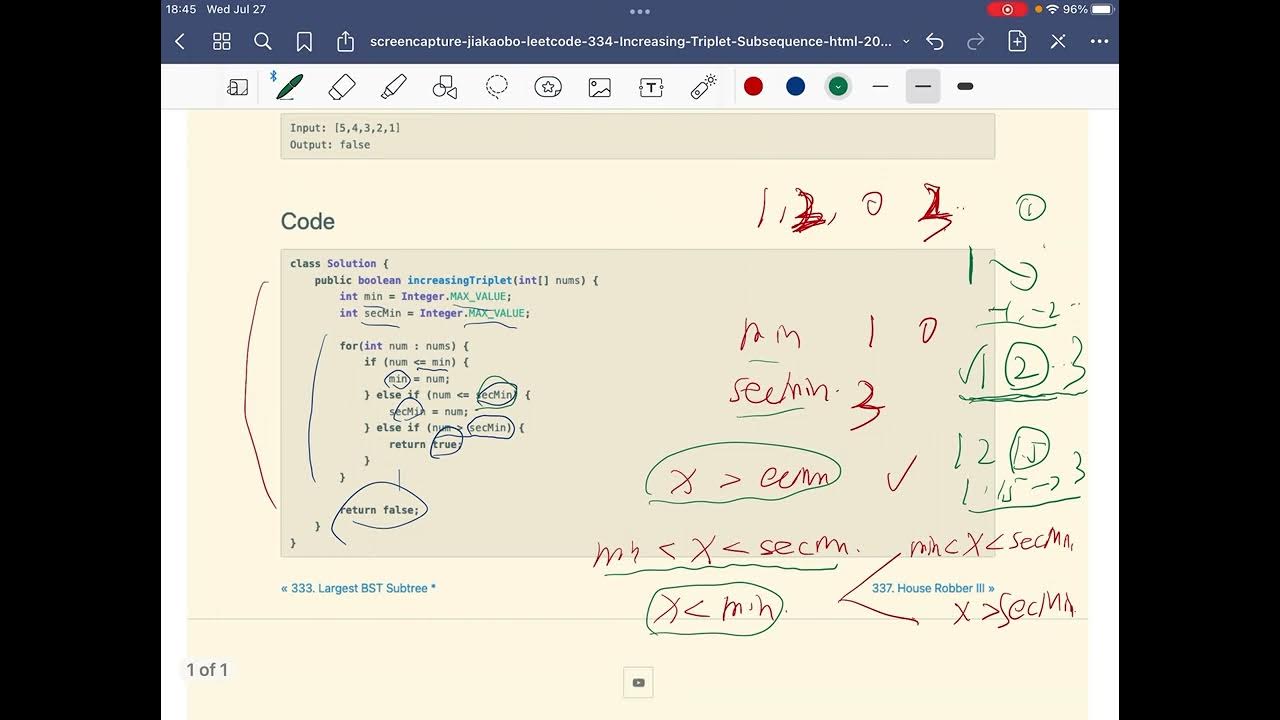 18:45 Wed Jul 27
96%
screencapture-jiakaobo-leetcode-334-Increasing-Triplet-Subsequence-html-20...
Input: [5,4,3,2,1]
Output: false
Code
class Solution {
public boolean increasingTriplet(int[] nums) {
int min = Integer.MAX_VALUE;
int secMin = Integer.MAX_VALUE;
for(int num : nums) {
if (num <= min) {
min = num;
} else if (num <= secMin) {
secMin = num;
} else if (num > secMin) {
return true;
}
}
return false;
}
}
« 333. Largest BST Subtree *
337. House Robber III »
1 of 1
min 1 0
secMin.
min < x < secMin.
x < min.
min < x < secMin,
x > secMin
-1, -2
1 2 .. 3
1 2 1.5
1. 1.5 -> 3